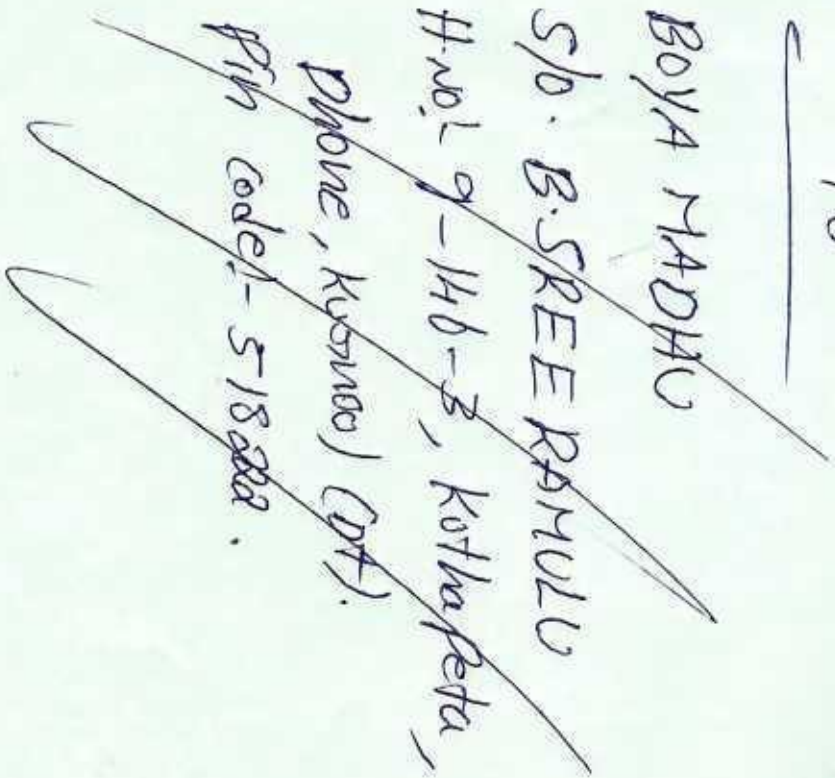 To
BOYA MADHU
S/o. B. SREE RAMULU
H-NO:- 9-146-3, Kothapeta,
Dhone, Kurnool (Dt).
Pin code:- 518222.